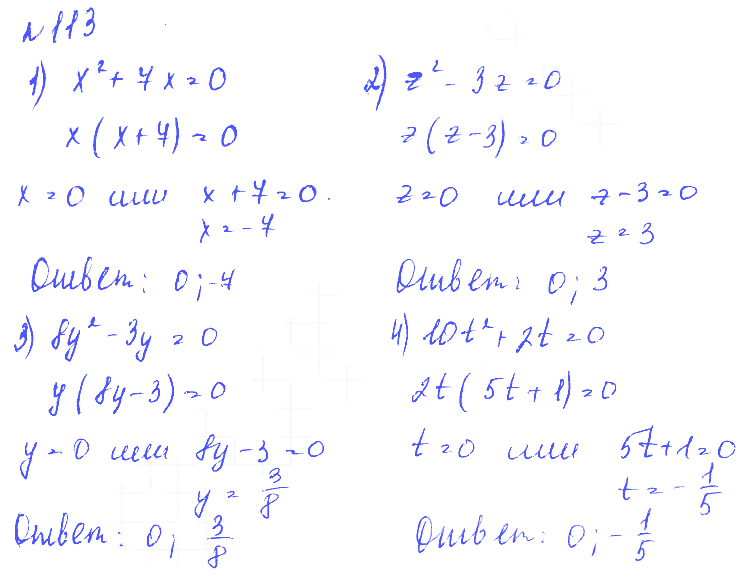 №113
1) x² + 7x = 0
x(x+7) = 0
x = 0 или x+7 = 0.
x = -7
Ответ: 0; -7
2) z² - 3z = 0
z(z-3) = 0
z = 0 или z-3 = 0
z = 3
Ответ: 0; 3
3) 8y² - 3y = 0
y(8y-3) = 0
y = 0 или 8y-3 = 0
y = 3/8
Ответ: 0; 3/8
4) 10t² + 2t = 0
2t(5t+1) = 0
t = 0 или 5t+1 = 0
t = -1/5
Ответ: 0; -1/5